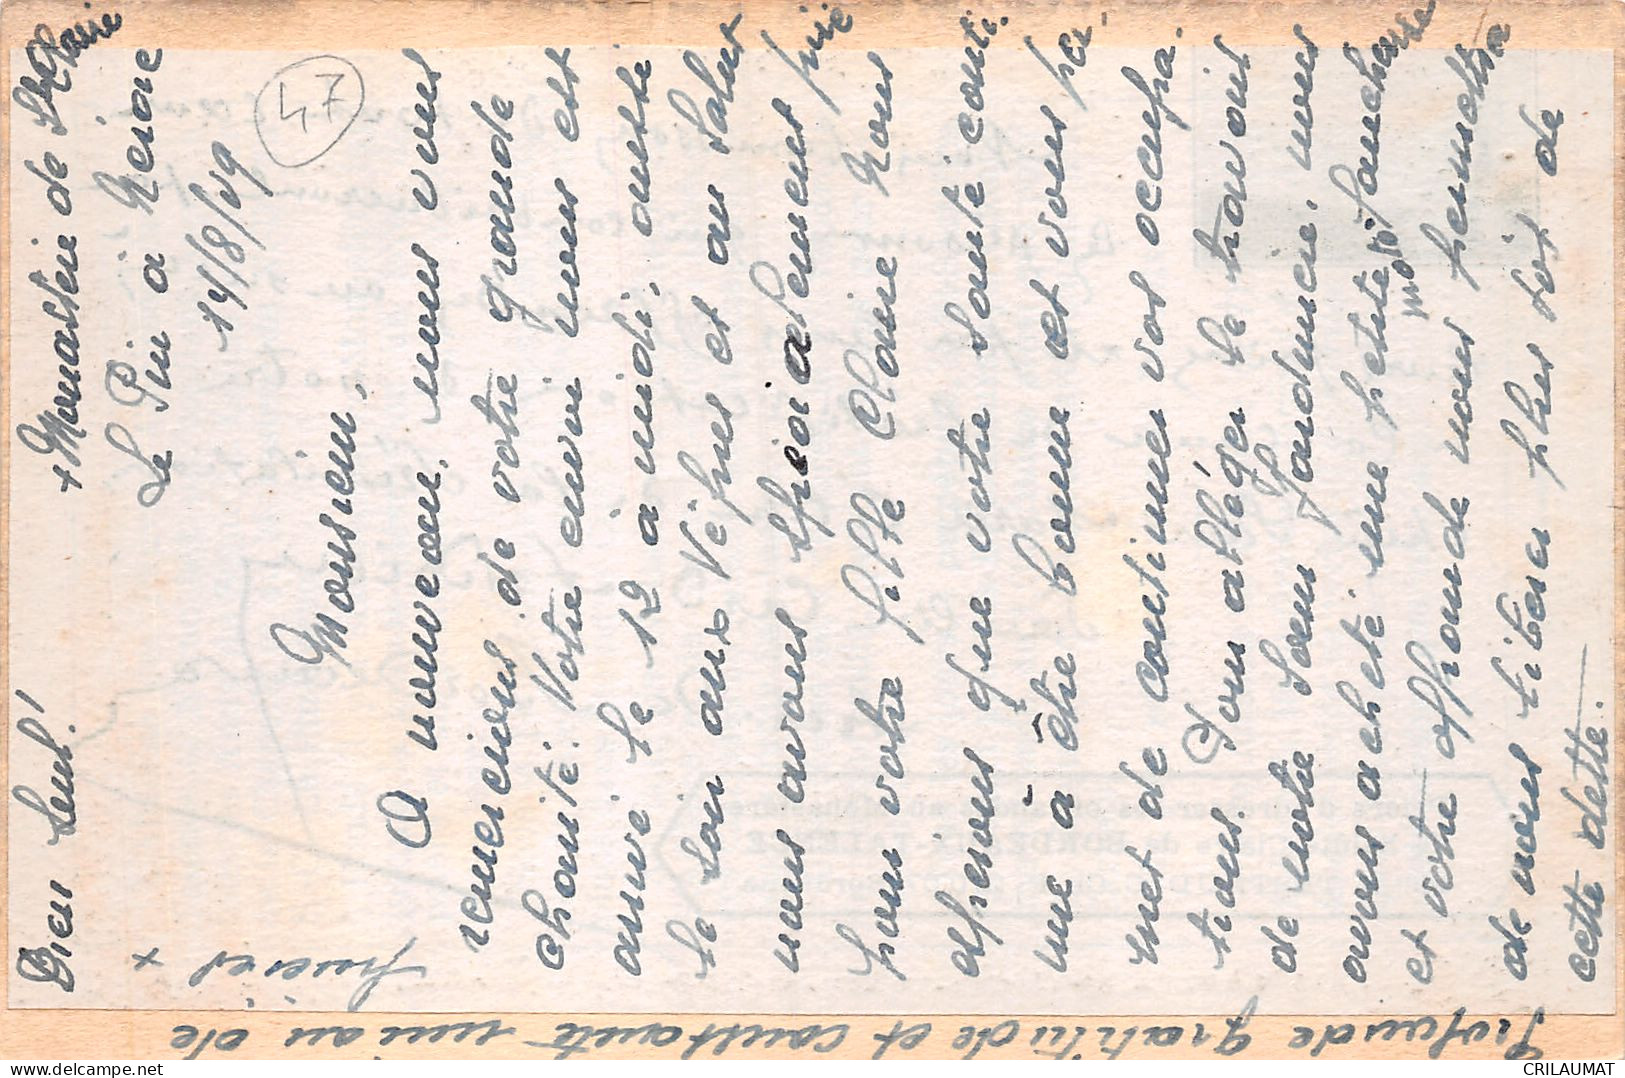 Dieu seul! + Monastère de Ste Claire
Le Pin à Mérine
+ 14/8/49
47
Monsieur,
A nouveau, nous vous
remercions de votre grande
charité. Votre envoi nous est
arrivé le 12 à midi, aussi
le soir aux Vêpres et au Salut
nous avons spécialement prié
pour votre fille Claire. Nous
espérons que votre santé conti-
nue à être bonne et vous per-
met de continuer vos occupa-
tions. Pour alléger le travail
de notre Soeur Jardinière, nous
avons acheté une petite motofaucheuse
et votre offrande nous permettra
de nous libérer plus tôt de
cette dette.
Profonde gratitude et constante union de
prières
CRILAUMAT